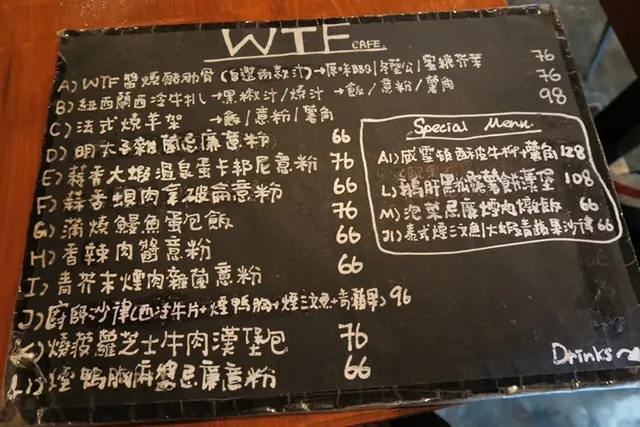 WTF CAFE.
A) WTF 醬燒豬肋骨 (自選兩款汁) → 原味BBQ/冬蔭公/蜜糖芥茉 76
B) 紐西蘭西冷牛扒 → 黑椒汁/燒汁 → 飯/意粉/薯角 76
C) 法式燒羊架 → 飯/意粉/薯角 98
D) 明太子雜菌忌廉意粉 66
E) 蒜香大蝦溫泉蛋卡邦尼意粉 76
F) 蒜香蜆肉拿破崙意粉 66
G) 蒲燒鰻魚蛋包飯 76
H) 香辣肉醬意粉 66
I) 青芥末煙肉雜菌意粉 66
J) 廚師沙律(西冷牛片+煙鴨胸+煙三文魚+青蘋果) 96
K) 燒菠蘿芝士牛肉漢堡包 76
L) 煙鴨胸麻忌廉意粉 66
Special Menu
A1) 威靈頓酥皮牛柳+薯角 128
L) 鵝肝黑松露薯餅漢堡 108
M) 泡菜忌廉煙肉燉飯 66
J1) 泰式煙三文魚大蝦青蘋果沙律 66
Drinks~